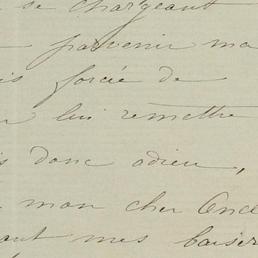 se chargeant
parvenir ma
is forcée de
lui remettre
donc adieu,
mon cher Oncl
ant mes baiser